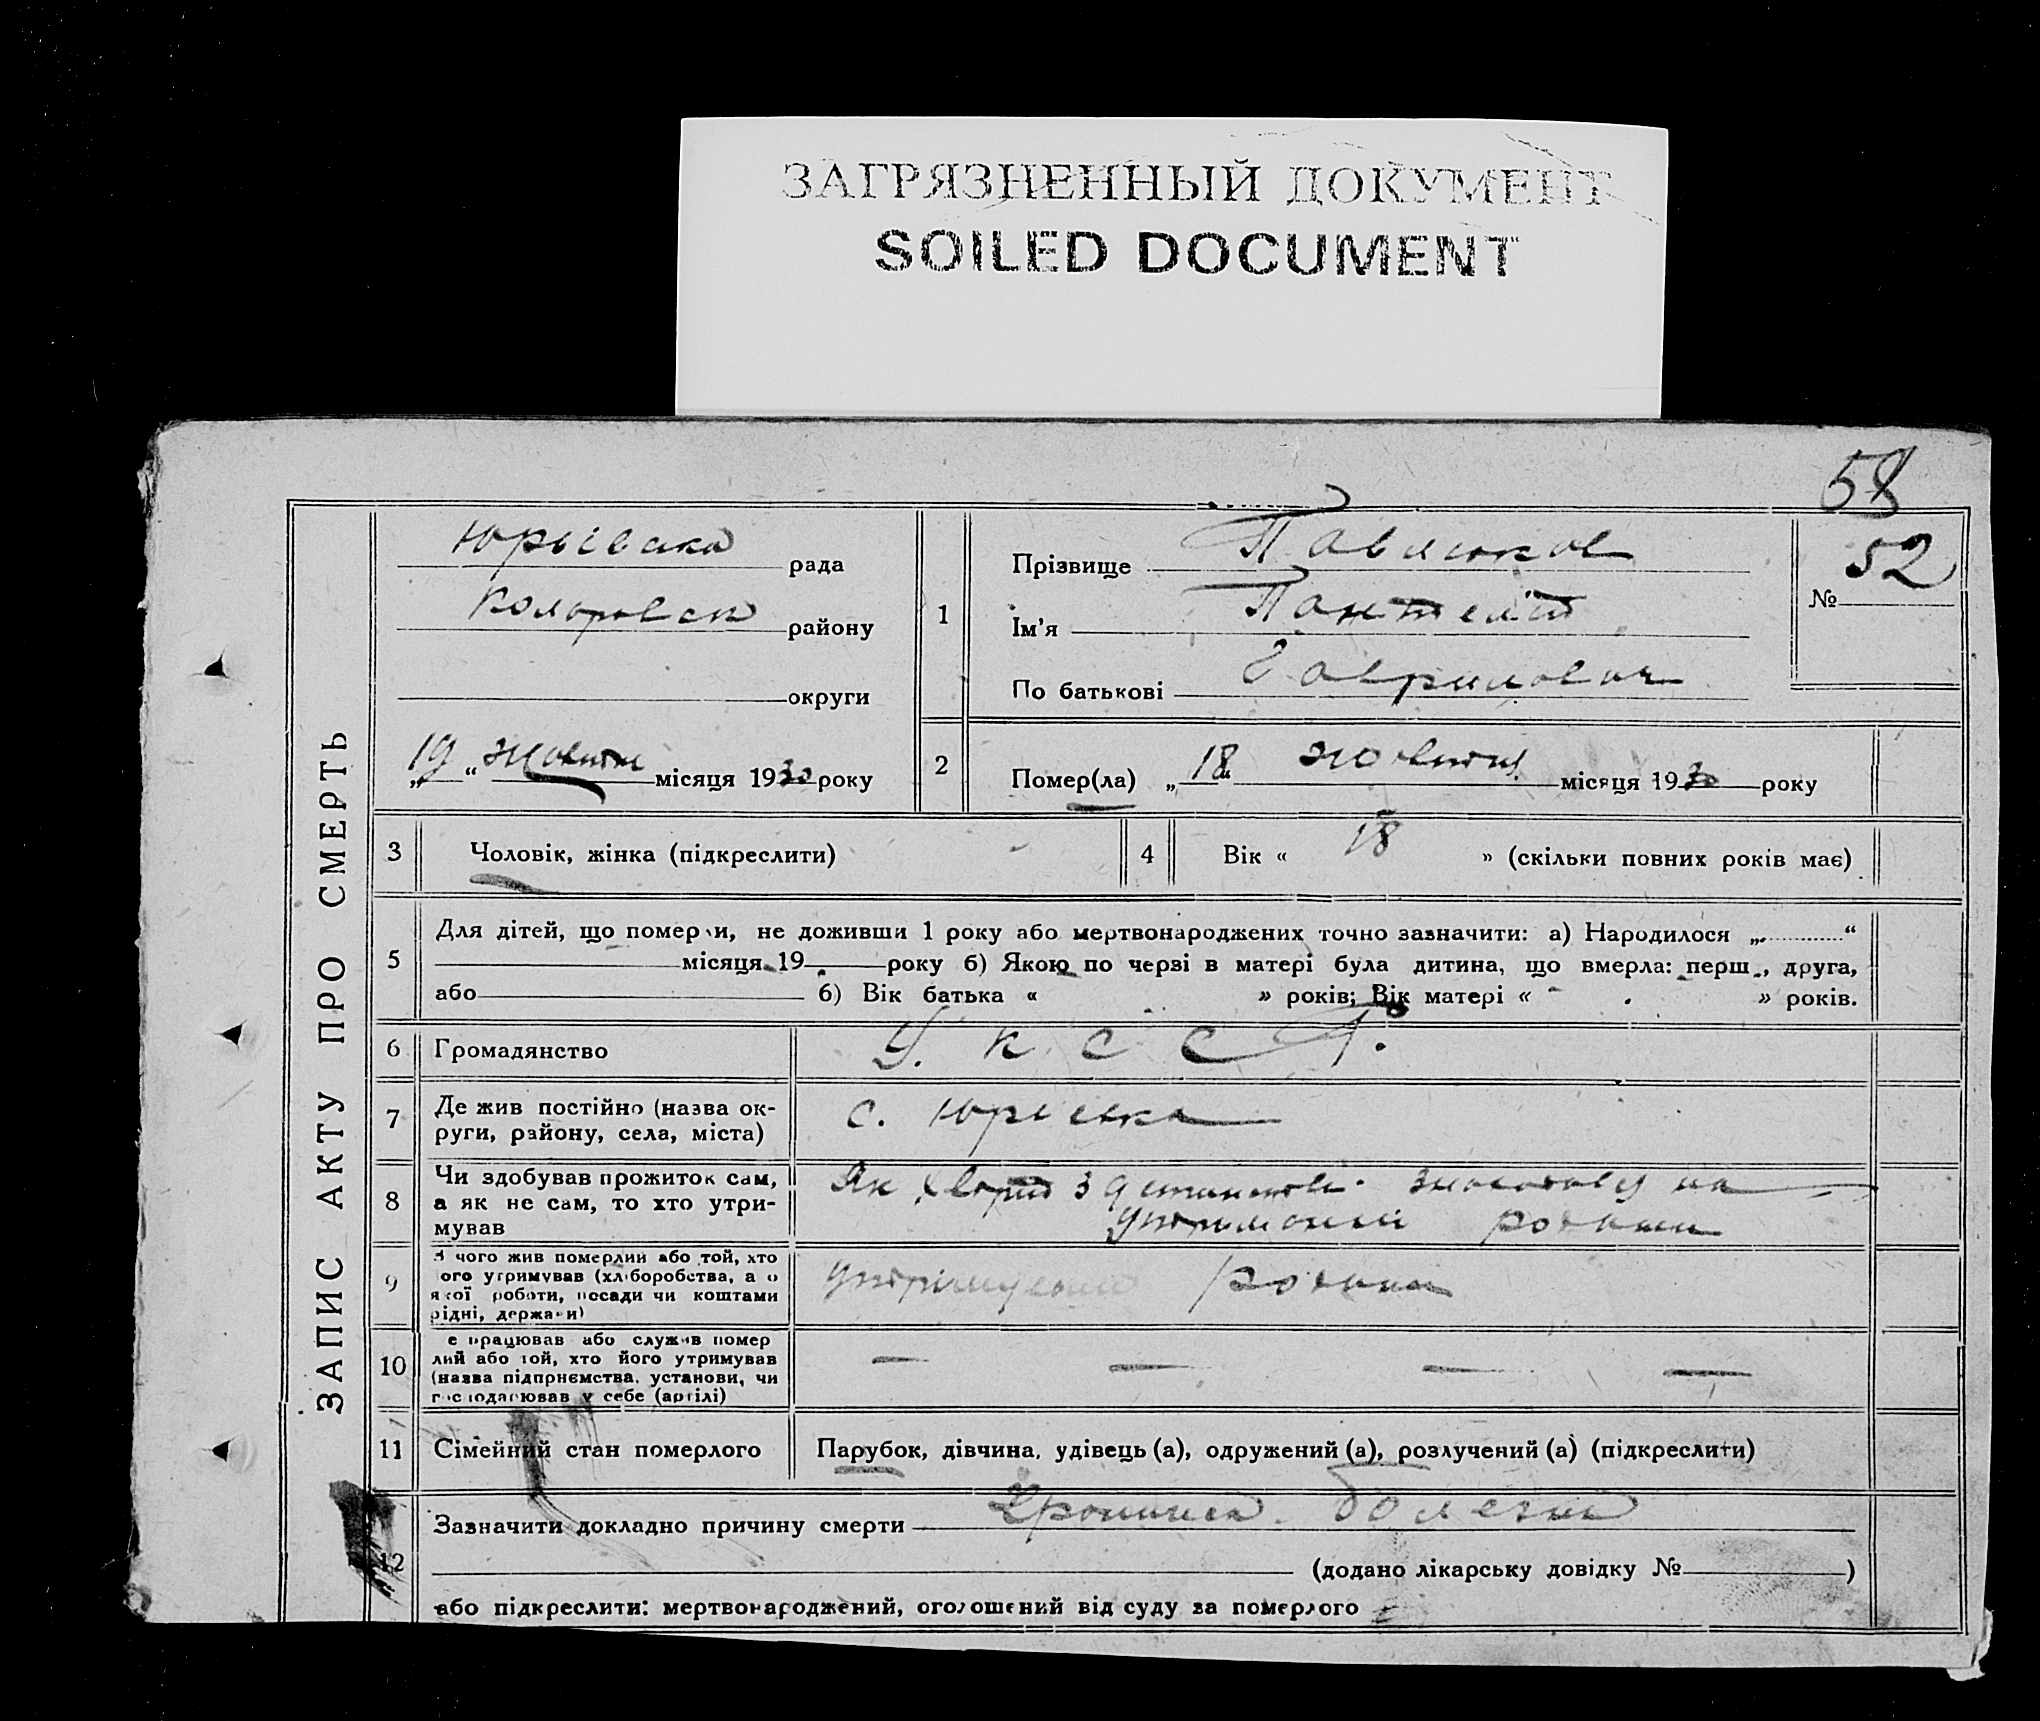 ЗАГРЯЗНЕННЫЙ ДОКУМЕНТ
SOILED DOCUMENT
58
ЗАПИС АКТУ ПРО СМЕРТЬ
Юрьївська рада
району
округи
„19“ жовтня місяця 1930 року
1
Прізвище Павлюков
Ім'я Пантелій
По батькові Гаврилович
№ 52
2
Помер(ла) „18“ жовтня місяця 1930 року
3
Чоловік, жінка (підкреслити)
4
Вік « 18 » (скільки повних років має)
5
Для дітей, що померли, не доживши 1 року або мертвонароджених точно зазначити: а) Народилося „ “
місяця 19 року б) Якою по черзі в матері була дитина, що вмерла: перш , друга,
або б) Вік батька « » років; Вік матері « » років.
6
Громадянство У.К.С.С.Р.
7
Де жив постійно (назва ок-
руги, району, села, міста)
с. Юрьевка
8
Чи здобував прожиток сам,
а як не сам, то хто утри-
мував
Як хворий з на
родини
9
З чого жив померлий або той, хто
ого утримував (хліборобства, а о
якої роботи, посади чи коштами
рідні, держави)
родини
10
е працював або служив помер
лий або той, хто його утримував
(назва підприємства, установи, чи
господарював у себе (артілі)
— — — —
11
Сімейний стан померлого
Парубок, дівчина, удівець (а), одружений (а), розлучений (а) (підкреслити)
12
Зазначити докладно причину смерти
(додано лікарську довідку № )
або підкреслити: мертвонароджений, оголошений від суду за померлого